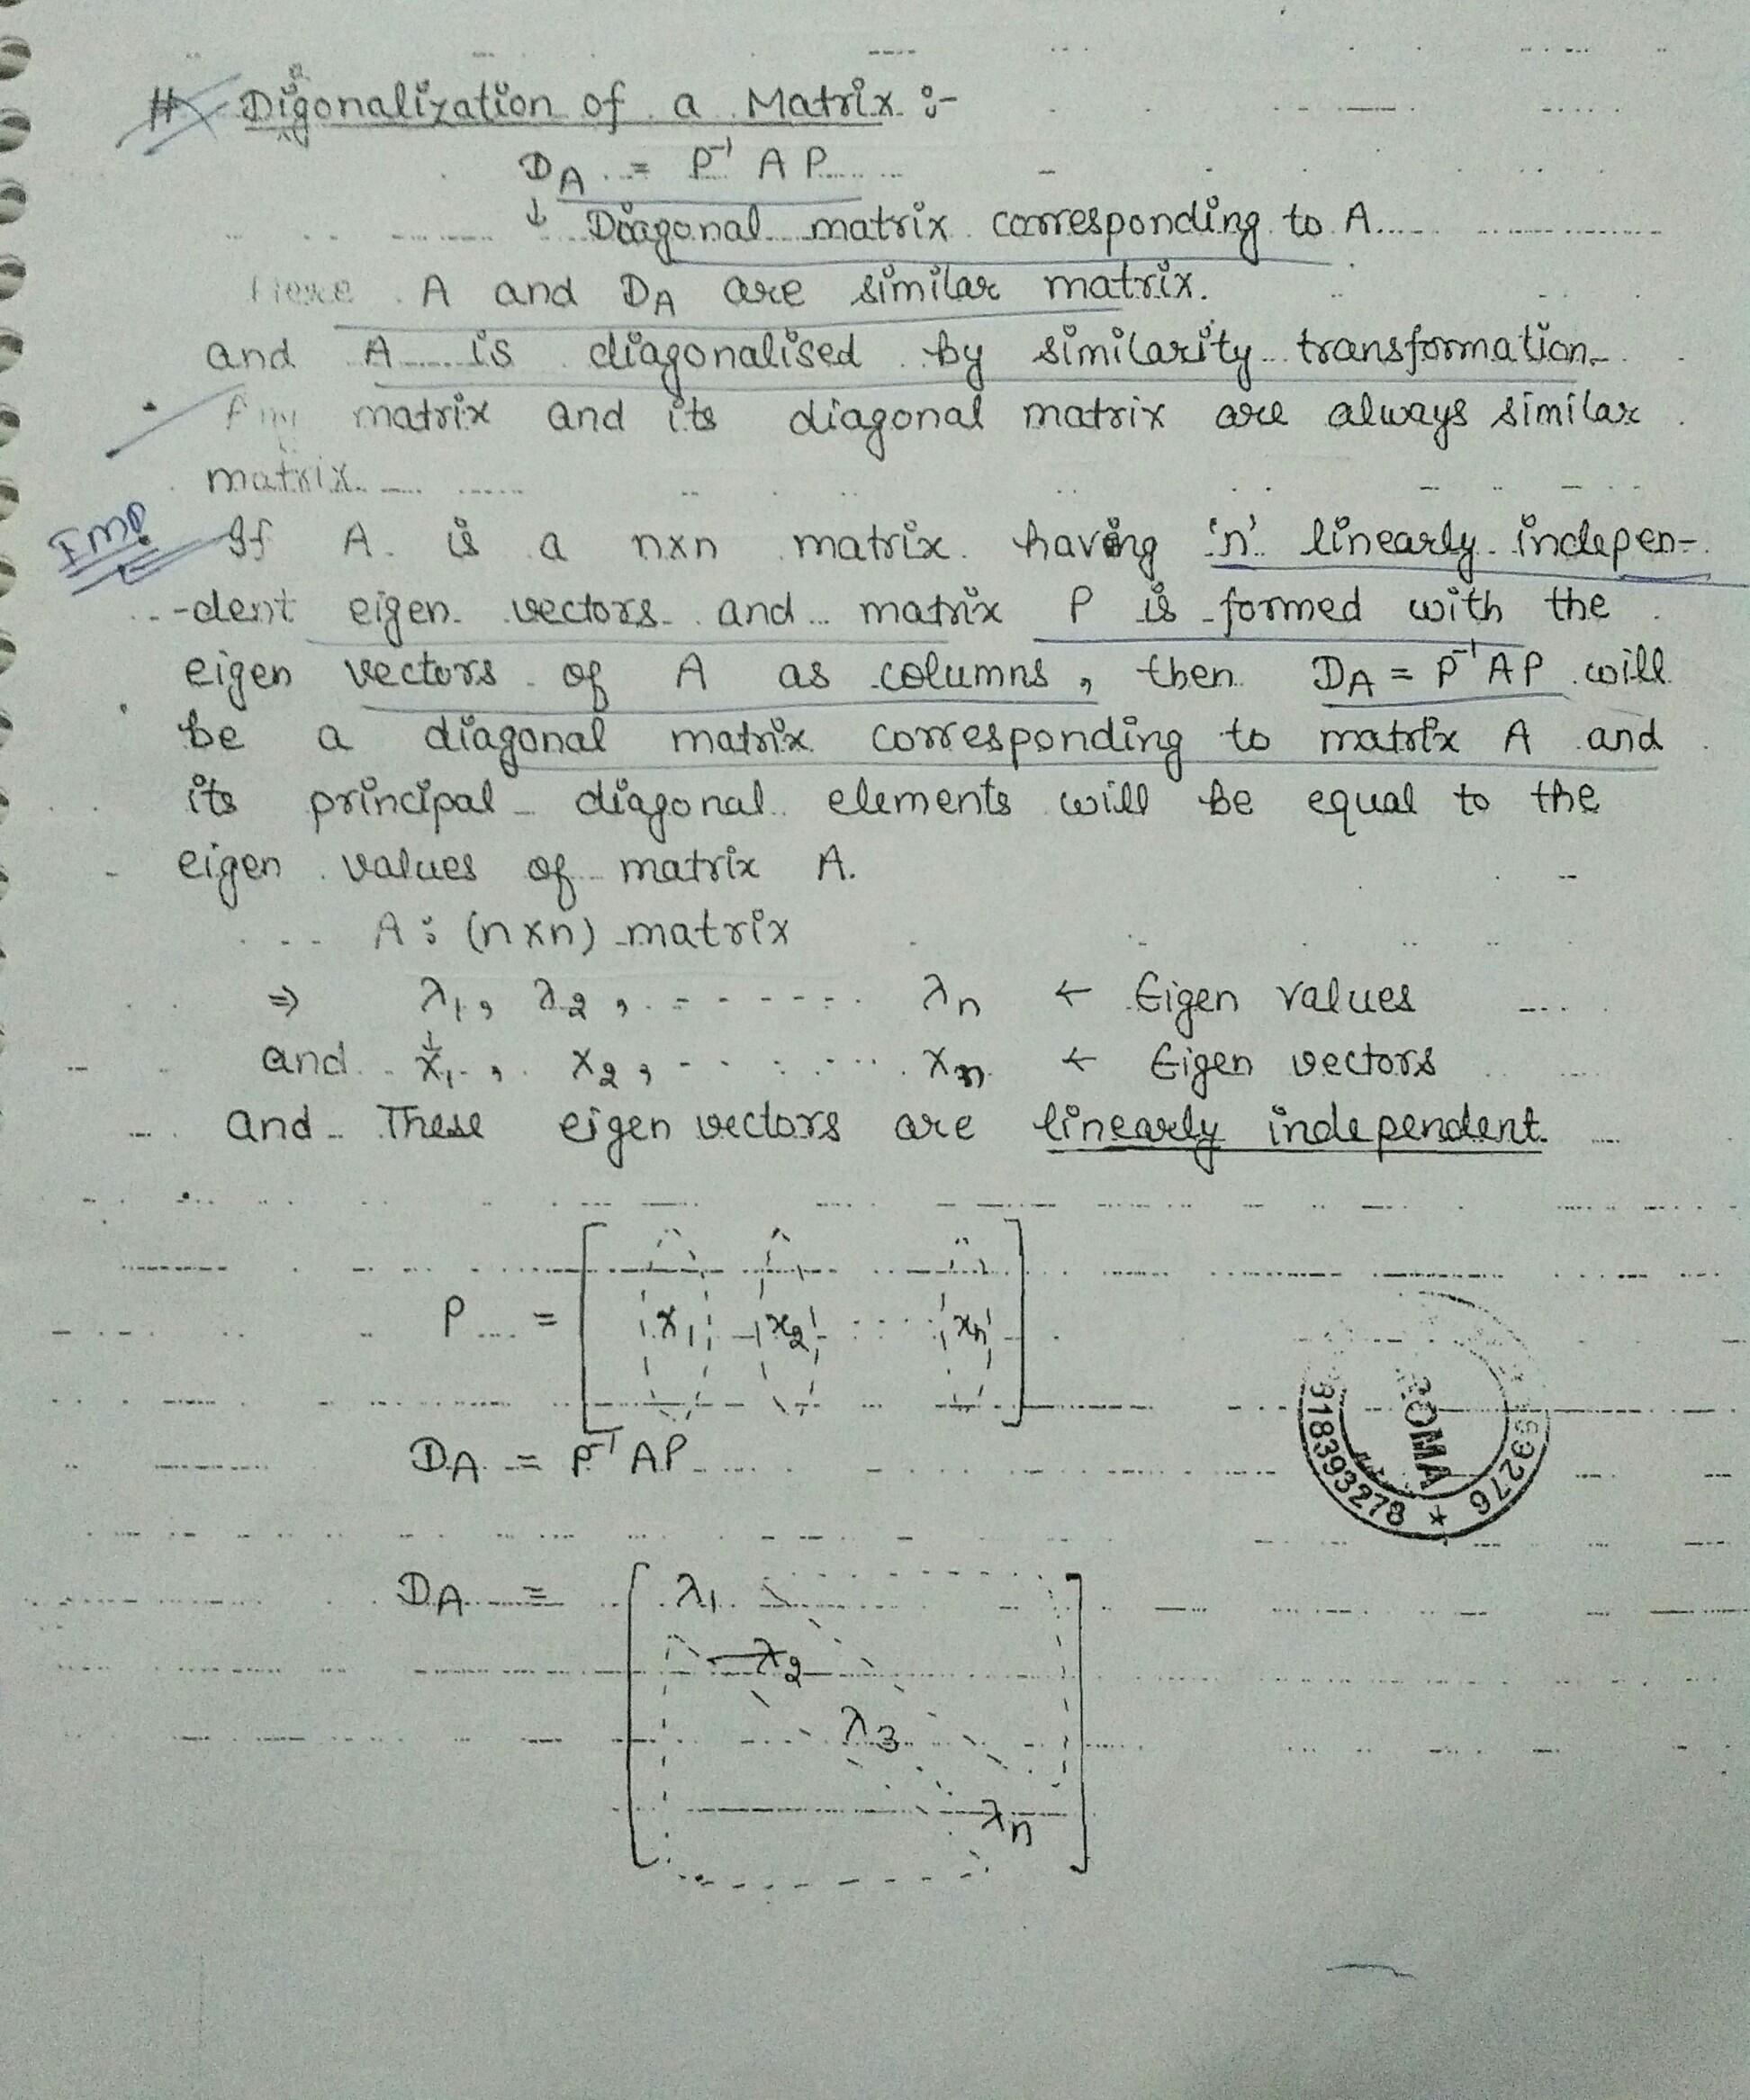 # Digonalization of a Matrix :-
a
D_A = P⁻¹ A P
↓ Diagonal matrix corresponding to A.
Here A and D_A are similar matrix.
and A is diagonalised by similarity transformation.
Any matrix and its diagonal matrix are always similar
matrix.
IMP If A is a n×n matrix having 'n' linearly indepen-
-dent eigen vectors and matrix P is formed with the
eigen vectors of A as columns, then D_A = P⁻¹ A P will
be a diagonal matrix corresponding to matrix A and
its principal diagonal elements will be equal to the
eigen values of matrix A.
A : (n×n) matrix
⇒ λ₁, λ₂, ------- λₙ ← Eigen values
↓
and x₁, x₂, ------- xₙ ← Eigen vectors
and These eigen vectors are linearly independent.
P = [ x₁ x₂ .... xₙ ]
D_A = P⁻¹ A P
D_A = [ λ₁
λ₂
λ₃
λₙ ]